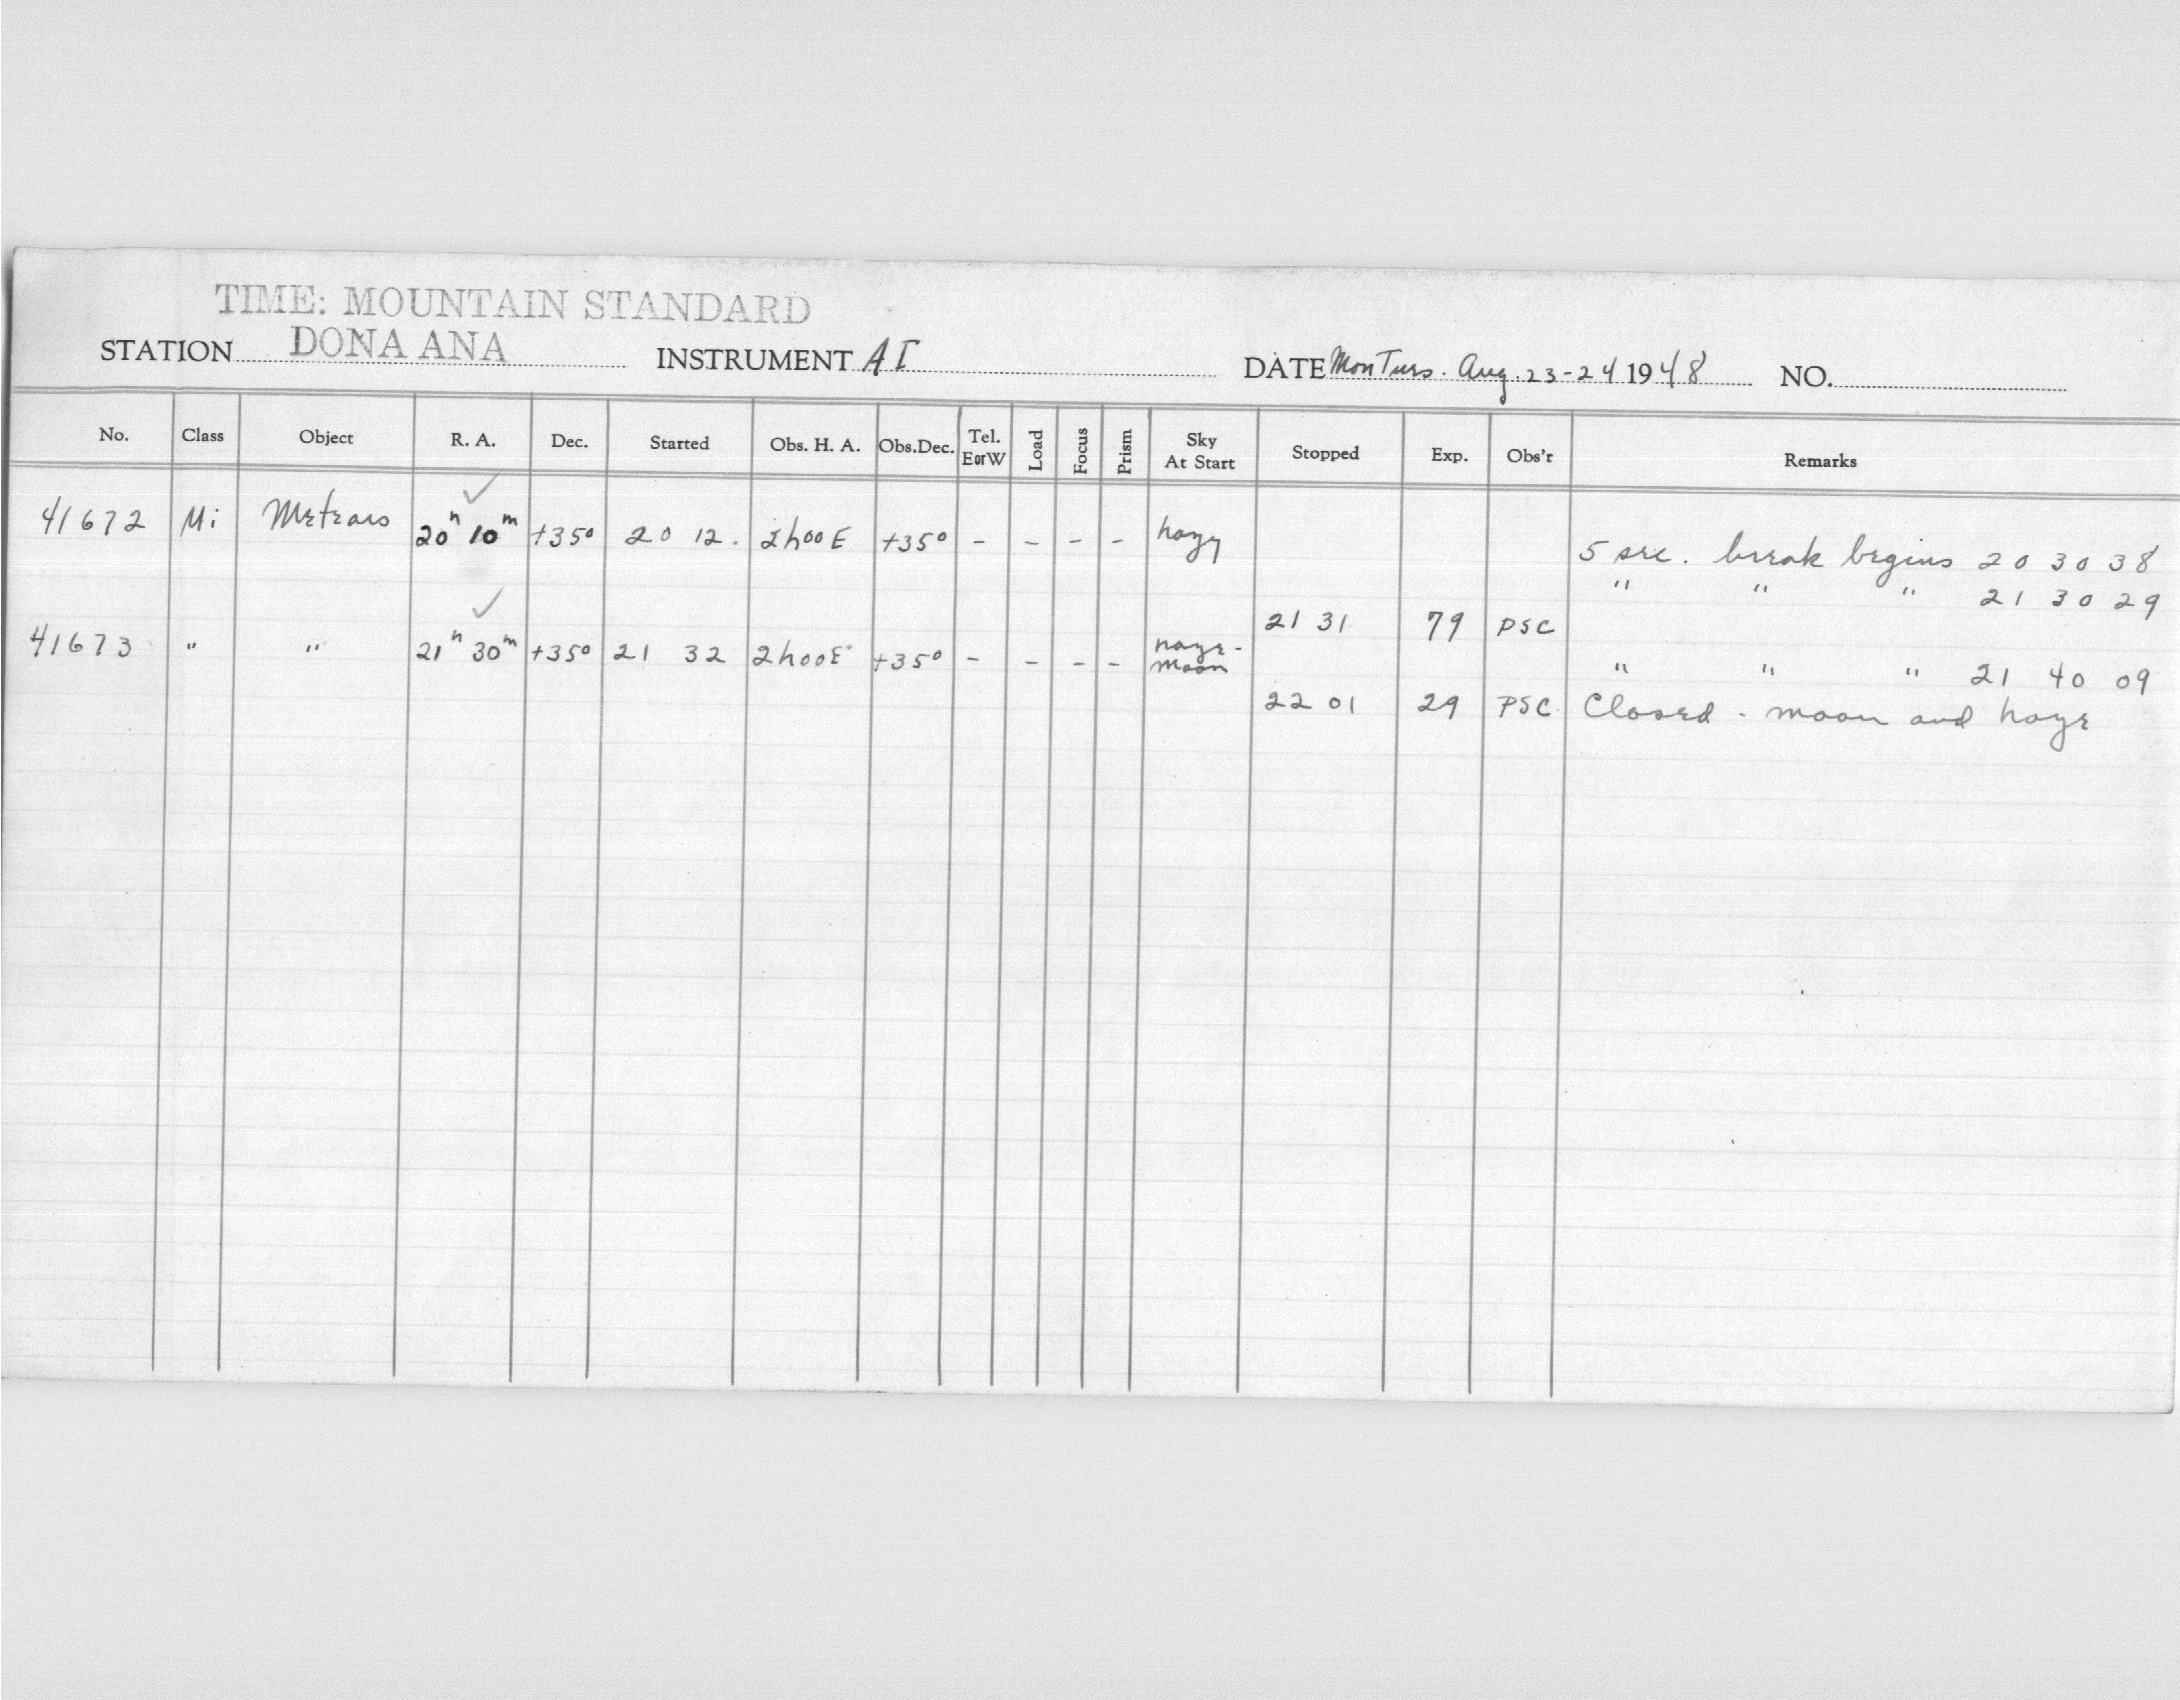 TIME: MOUNTAIN STANDARD
STATION DONA ANA INSTRUMENT AI DATE Mon Tues. Aug. 23-24 1948 NO.
No. Class Object R. A. Dec. Started Obs. H. A. Obs.Dec. Tel. E or W Load Focus Prism Sky At Start Stopped Exp. Obs'r Remarks
41672 Mi Meteors 20h 10m +35° 20 12. 2h00E +35° - - - - hazy
5 sec. break begins 20 30 38
" " " 21 30 29
21 31 79 PSC
41673 " " 21h 30m +35° 21 32 2h00E +35° - - - - haze - moon
" " " 21 40 09
22 01 29 PSC Closed - moon and haze